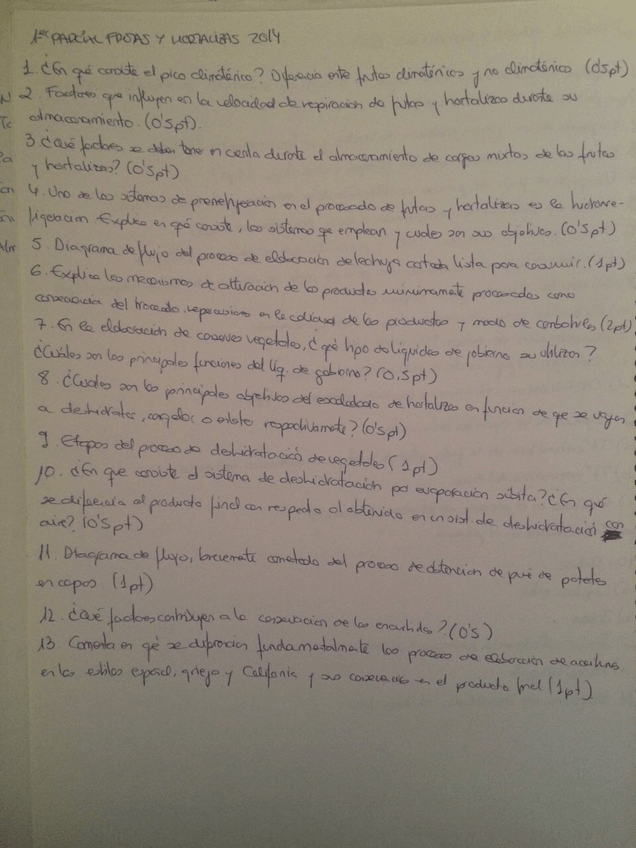 1er PARCIAL FRUTAS Y HORTALIZAS 2014
1. ¿En qué consiste el pico climatérico? Diferencia entre frutos climatéricos y no climatérico (0'5pt)
2. Factores que influyen en la velocidad de respiración de frutas y hortalizas durante su
almacenamiento. (0'5pt).
3. ¿Qué factores se deben tener en cuenta durante el almacenamiento de cargas mixtas de las frutas
y hortalizas? (0'5pt)
4. Uno de los sistemas de prerrefrigeración en el procesado de frutas y hortalizas es la hidrorre-
frigeración. Explica en qué consiste, los sistemas que emplean y cuales son sus objetivos. (0'5pt)
5. Diagrama de flujo del proceso de elaboración de lechuga cortada lista para consumir. (1pt)
6. Explica los mecanismos de alteración de los productos minimamente procesados como
consecuencia del troceado, repercusiones en la calidad de los productos y modo de controlarlos (2pt)
7. En la elaboración de conservas vegetales, ¿qué tipo de líquidos de gobierno se utilizan?
¿Cuáles son las principales funciones del líq. de gobierno? (0,5pt)
8. ¿Cuales son los principales objetivos del escaldado de hortalizas en funcion de que se vayan
a deshidratar, congelar o enlatar respectivamente? (0'5pt)
9. Etapas del proceso de deshidratació de vegetales (1pt)
10. ¿En que consiste el sistema de deshidratación por evaporación súbita? ¿En qué
se diferencia el producto final con respecto al obtenido en un sist. de deshidratació con
aire? (0'5pt)
11. Diagrama de flujo, brevemente comentado del proceso de obtencion de puré de patatas
en copos. (1pt)
12. ¿Qué factores contribuyen a la conservacion de los encurtidos? (0'5)
13. Comenta en qé se diferencian fundamentalmente los procesos de elaboración de aceitunas
en los estilos español, griego y California y sus consecuencias en el producto final (1pt)